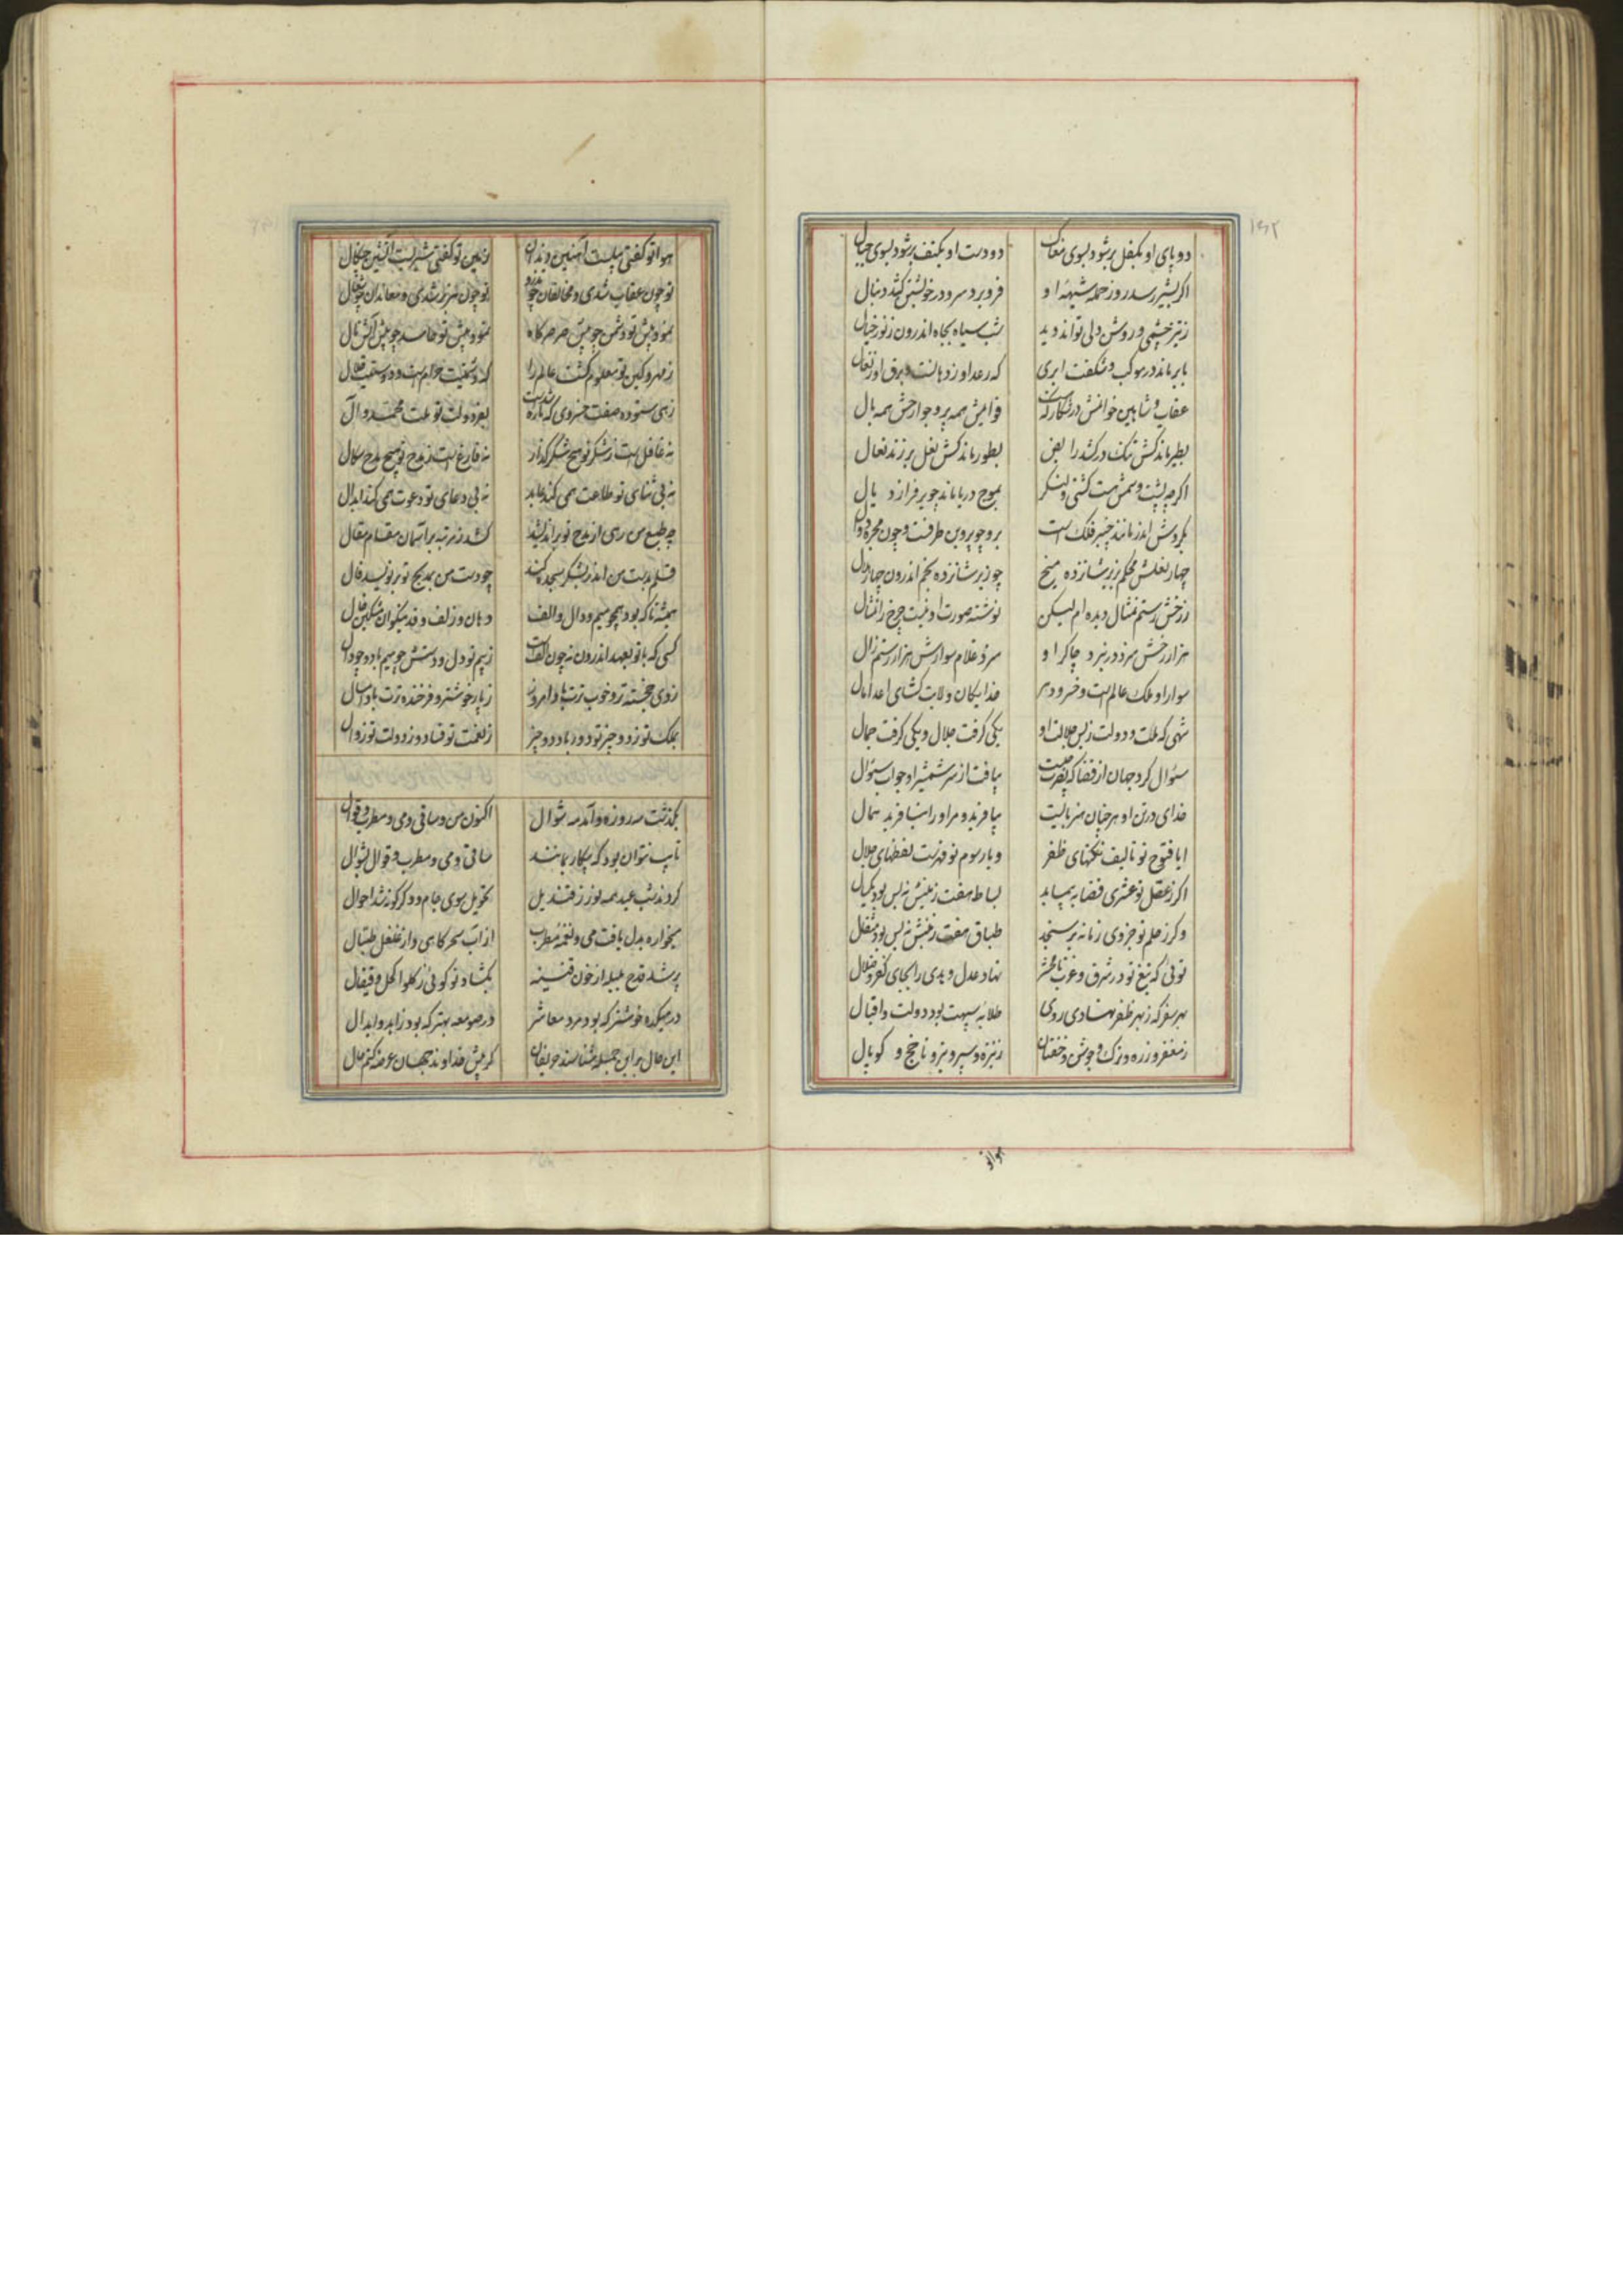 ۱۶۲
دو پای او بکفل بر شود بسوی مغاک دو دست او بکتف بر شود بسوی جبال
اگر بشیر رسد روز حمله شیهه او فرو برد سر و در خویشتن کشد دنبال
ز تیز چشمی و روشن دلی تواند دید شب سیاه بچاه اندرون ز نور خیال
بابر ماند در موکب و شگفت ابری که رعد او ز دهانست و برق او ز نعال
عقاب و شاهین خوانمش در شکار که هست قوایمش همه پر و جوارحش همه بال
بطیر ماند کش تنک درکشد رایض بطور ماند کش نعل بر زند نعال
اگرچه پشت و سمش هست کشتی و لنگر بموج دریا ماند چو بر فرازد یال
بگردش اندر مانند چنبر فلک است برو چو پروین طرفست و چون مجره دوال
چهار نعلش محکم بزیر شانزده میخ چو زیر شانزده نجم اندرون چهار هلال
ز رخش رستم تمثال دیده ام لیکن نوشته صورت او نیست چرخ را تمثال
هزار رخش سزد در نبرد چاکر او سزد غلام سوارش هزار رستم زال
سوار او ملک عالم است و خسرو دهر خدایگان ولایت گشای اعدا مال
شهی که ملت و دولت ز بس جلالت او یکی گرفت جلال و یکی گرفت جمال
سئوال کرد جهان از قضا که نصرت چیست بیافت از سر شمشیر او جواب سئوال
خدای در تن او هر چنان هنر بایست بیافرید و مر او را نیافرید همال
ایا فتوح تو تالیف نکتهای ظفر و یا رسوم تو فهرست لفظهای جلال
اگر ز عقل تو عشری قضا بپیماید بساط هفت زمینش نه بس بود مکیال
وگر ز حلم تو جزوی زمانه بر سنجد طباق هفت زمینش نه بس بود مثقال
توئی که تیغ تو در شرق و غرب تا محشر نهاد عدل و هدی را بجای کفر و ضلال
بهر سفر که ز بهر ظفر نهادی روی طلایه سپهت بود دولت و اقبال
ز مغفر و زره و ترک و جوشن و خفتان ز نیزه و سپر و تیر و ناچخ و کوپال
هوا تو
هوا تو گفتی پیلیست آهنین دندان زمین تو گفتی شیریست آتشین چنگال
تو چون عقاب شدی و مخالفان چو تذرو تو چون هزبر شدی و معاندان چو شغال
نمود پیش تو دشمن چو پیش صرصر کاه نمود پیش تو حاسد چو پیش آتش نال
ز مهر و کین تو معلوم گشت عالم را که دشمنیت حرام است و دوستیت حلال
زهی ستوده صفت خسروی که تازه شدست بعز دولت تو ملت محمد و آل
نه غافل است ز شکر تو هیچ شکر گذار نه فارغ است ز مدح تو هیچ مدح سگال
نه بی ثنای تو طاعت همی کند عابد نه بی دعای تو دعوت همی کند ابدال
چو طبع من رهی از مدح تو بر اندیشد کشد ز مرتبه بر آسمان مقام مقال
قلم بدست من اندر بشکر سجده کند چو دست من بمدیح تو بر نویسد قال
همیشه تا که بود همچو میم و دال و الف دهان و زلف و قد نیکوان مشکین خال
کسی که با تو بعهد اندرون نه چون الفست ز بیم تو دل و دستش چو میم باد و چو دال
ز دی خجسته تر و خوب ترت باد امروز ز پار خوشتر و فرخنده ترت باد امسال
بملک تو ز دو چیز تو دور باد دو چیز ز نعمت تو فساد و ز دولت تو زوال
بگذشت مه روزه و آمد مه شوال اکنون من و ساقی و می و مطرب و قوال
تا پیر نتوان بود که بیکار بمانند ساقی و می و مطرب و قوال بشوال
کردند شب عید همه نور ز قندیل تحویل بسوی جام و دگرگونه شد احوال
میخواره بدل یافت می و نغمه مطرب از آب سحرگاهی و از غلغل طبال
پر شد قدح بلبله از خون قنینه بگشاد تو گوئی ز گلو اکحل و قیفال
در میکده خوشتر که بود مرد معاشر در صومعه بهتر که بود زاهد و ابدال
این حال بر این جمله شناسند حریفان گر پیش خداوند جهان عرضه کنم حال